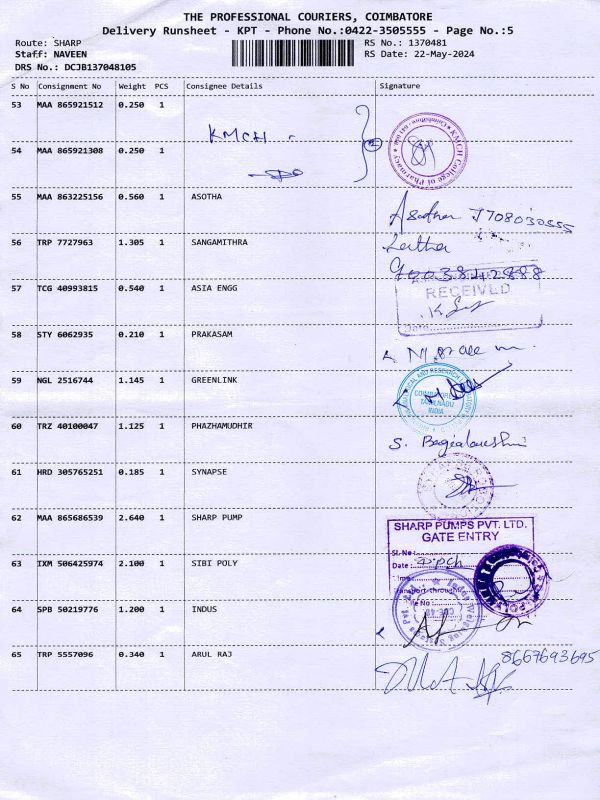 THE PROFESSIONAL COURIERS, COIMBATORE
Delivery Runsheet - KPT - Phone No.:0422-3505555 - Page No.:5
Route: SHARP
Staff: NAVEEN
DRS No.: DCJB137048105
RS No.: 1370481
RS Date: 22-May-2024
S No Consignment No Weight PCS Consignee Details Signature
53 MAA 865921512 0.250 1
KMCH
54 MAA 865921308 0.250 1
KMCH College of Pharmacy
55 MAA 863225156 0.560 1 ASOTHA
56 TRP 7727963 1.305 1 SANGAMITHRA
9003842888
57 TCG 40993815 0.540 1 ASIA ENGG
RECEIVED
Date
58 STY 6062935 0.210 1 PRAKASAM
59 NGL 2516744 1.145 1 GREENLINK
COIMBATORE
TAMILNADU
INDIA
60 TRZ 40100047 1.125 1 PHAZHAMUDHIR
61 HRD 305765251 0.185 1 SYNAPSE
62 MAA 865686539 2.640 1 SHARP PUMP
SHARP PUMPS PVT. LTD.
GATE ENTRY
Sl. No :
Date :
63 IXM 506425974 2.100 1 SIBI POLY
64 SPB 50219776 1.200 1 INDUS
65 TRP 5557096 0.340 1 ARUL RAJ
8667693695